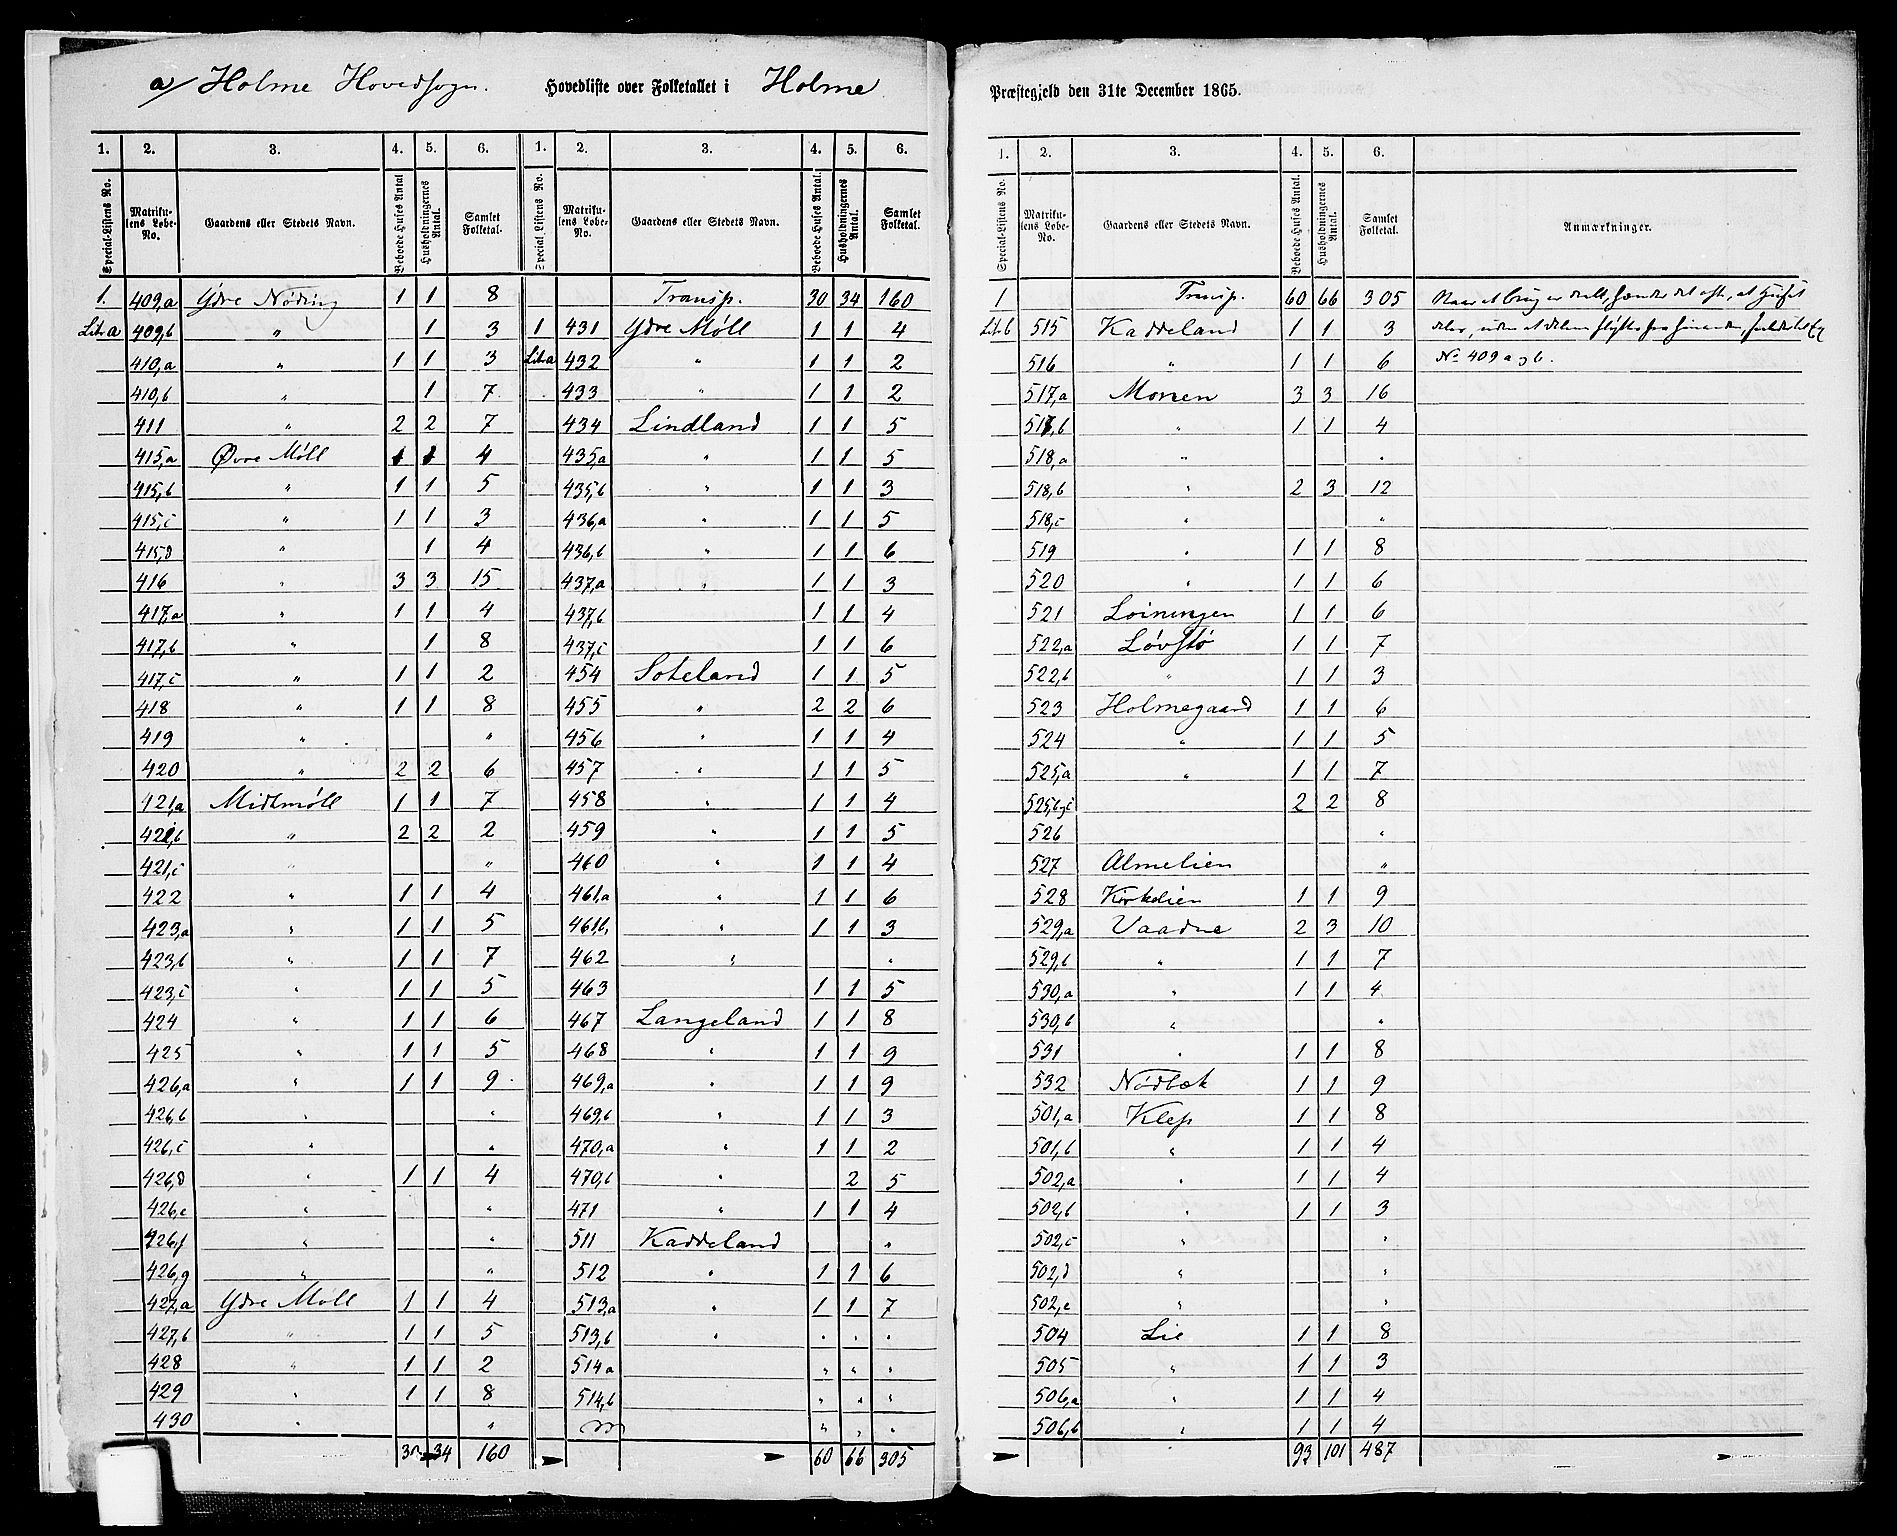 a/ Holme Hovedsogn. Hovedliste over Folketallet i Holme
1. 2. 3. 4. 5. 6.
Special-Listens No. Matrikulens Løbe-No. Gaardens eller Stedets Navn. Beboede Huses Antal Husholdningernes Antal. Samlet Folketal.
1. 409,a Ydre Nøding 1 1 8
Litr a 409,b " 1 3
410,a " 1 1 3
410,b " 1 7
411 " 2 2 7
415,a Øvre Møll 1 1 4
415,b " 1 1 5
415,c " 1 1 3
415,d " 1 4
416 " 3 3 15
417,a " 1 1 4
417,b " 1 8
417,c " 1 1 2
418 " 1 1 8
419 " "
420 " 2 2 6
421,a Midtmøll 1 1 7
421,b " 2 2 2
421,c " "
422 " 1 1 4
423,a " 1 1 5
423,b " 1 1 7
423,c " 1 1 5
424 " 1 1 6
425 " 1 1 5
426,a " 1 1 9
426,b " "
426,c " "
426,d " 1 1 4
426,e " "
426,f " "
426,g " "
427,a Ydre Møll 1 1 4
427,b " 1 1 5
428 " 1 1 2
429 " 1 1 8
430 " "
30 34 160
1. 2. 3. 4. 5. 6.
Special Listens No. Matrikulens Løbe-No. Gaardens eller Stedets Navn. Beboede Huses Antal. Husholdningernes Antal. Samlet Folketal.
Transp. 30 34 160
1 431 Ydre Møll 1 1 4
Litr a 432 " 1 1 2
433 " 1 1 2
434 Lindland 1 1 5
435,a " 1 1 5
435,b " 1 1 3
436,a " 1 1 5
436,b " 1 1 6
437,a " 1 1 3
437,b 1 1 4
437,c 1 1 6
454 Soteland 1 1 5
455 " 2 2 6
456 " 1 1 4
457 " 1 1 5
458 " 1 1 4
459 " 1 1 5
460 " 1 1 4
461,a " 1 1 6
461,b, " 1 1 3
462 " "
463 1 1 5
467 Langeland 1 1 8
468 " 1 1 9
469,a " 1 1 9
469,b " 1 1 3
470,a " 1 1 2
470,b " 2 5
471 " 1 1 4
511 Kaddeland "
512 " 1 1 6
513,a " 1 1 7
513,b " " " "
514a " " "
514,b " " "
" " "
60 66 305
Præstegjeld den 31te December 1865.
1. 2. 3. 4. 5. 6.
Special-Listens No. Matrikulens Løbe-No. Gaardens eller Stedets Navn. Beboede Huses Antal. Husholdningernes Antal. Samlet Folketal. Anmærkninger.
1 Transp. 60 66 305 Naar et brug er delt, hænder det ofte, at Huset
Litr b 515 Kaddeland 1 1 3 deles, uden at delene flyttes fra hinanden,
516 " 1 1 6 No 409 a og b.
517,a Monen 3 3 16
517,b " 1 1 4
518,a " "
518,b " 2 3 12
518,c " "
519 " 1 1 8
520 " 1 1 6
521 Loiningen 1 1 6
522,a Løvstø 1 1 7
522,b " 1 1 3
523 Holmegaard 1 1 6
524 " 1 1 5
525,a " 1 1 7
525,b og c 2 2 8
526 "
527 Almelien "
528 Kirkelien 1 1 9
529,a Vaadne 2 3 10
529,b " 1 1 7
530,a " 1 1 4
530,b " "
531 " 1 1 8
532 Nødbæk 1 1 9
501,a Klep 1 1 8
501,b " 1 1 4
502,a " 1 1 4
502,b " 1 1 3
502,c " "
502,d " "
502,e " "
504 Lie 1 1 8
505 " 1 1 3
506,a " 1 1 4
506,b " 1 1 4
93 101 487